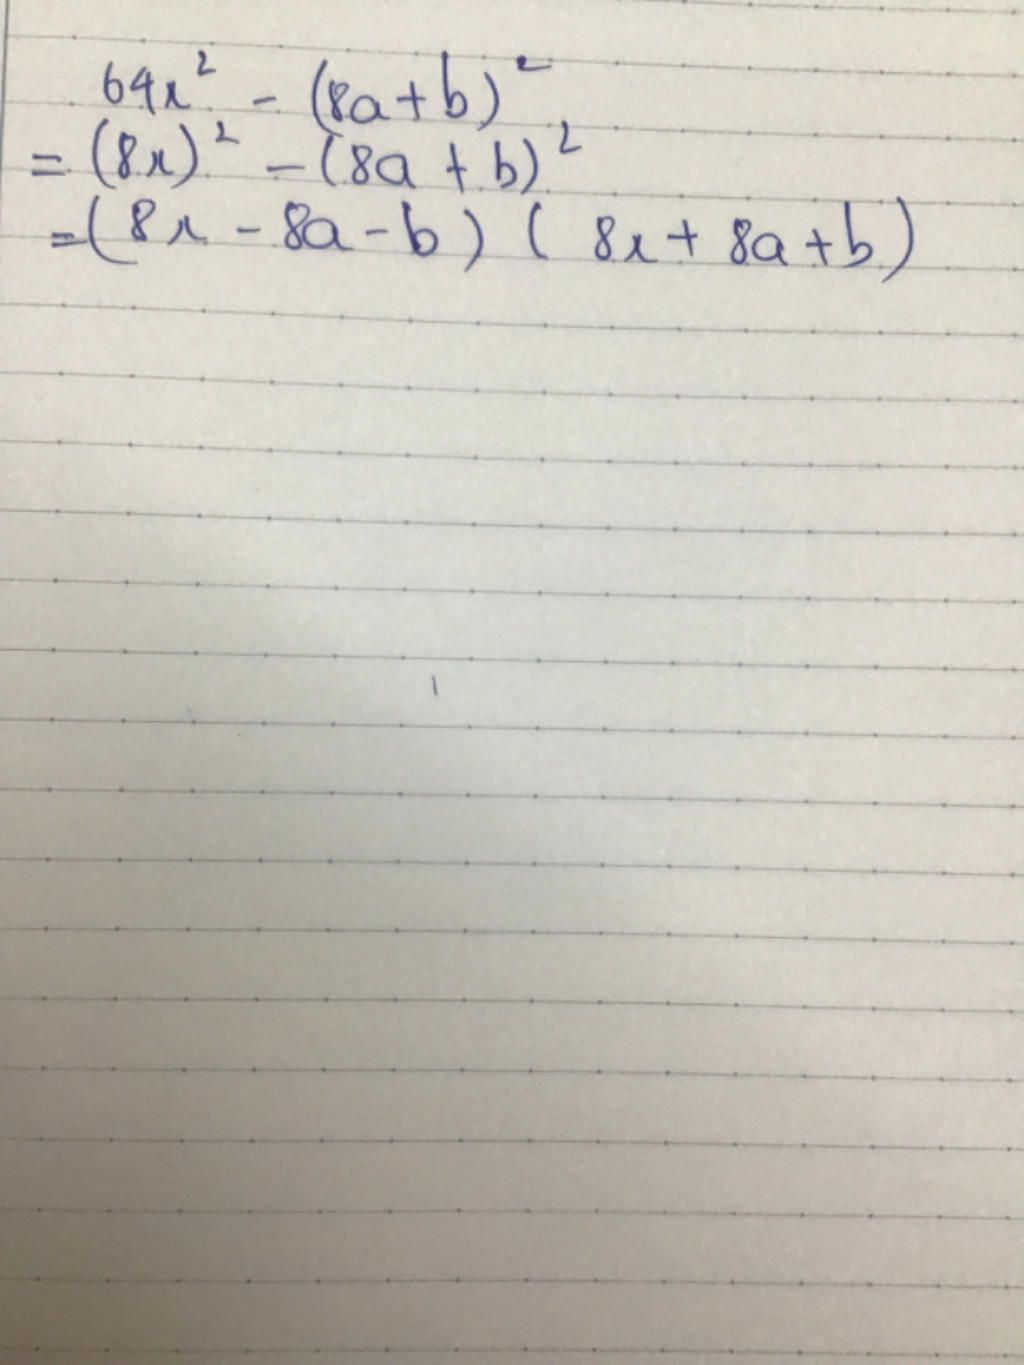 64x² - (8a+b)²
= (8x)² - (8a + b)²
= (8x - 8a - b) (8x + 8a + b)